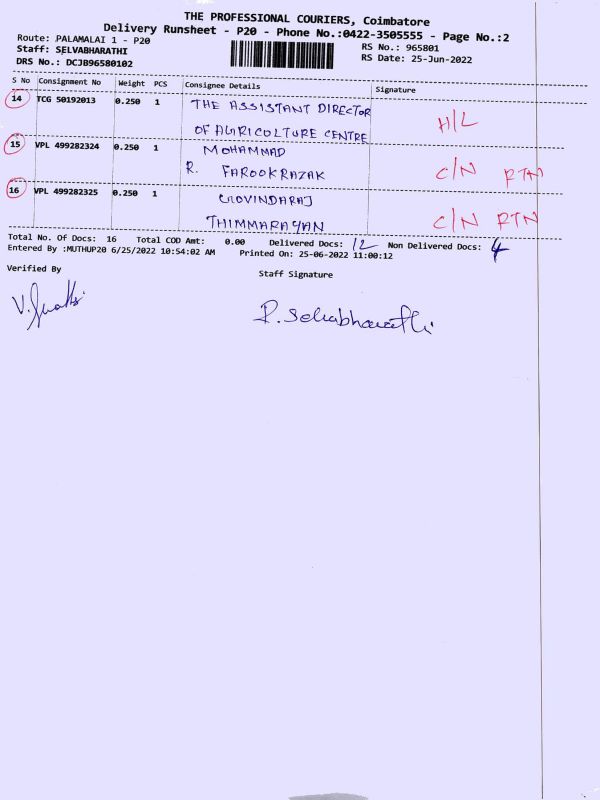 THE PROFESSIONAL COURIERS, Coimbatore
Delivery Runsheet - P20 - Phone No.:0422-3505555 - Page No.:2
Route: PALAMALAI 1 - P20
RS No.: 965801
Staff: SELVABHARATHI
RS Date: 25-Jun-2022
DRS No.: DCJB96580102
S No Consignment No Weight PCS Consignee Details Signature
14 TCG 50192013 0.250 1 THE ASSISTANT DIRECTOR
OF AGRICULTURE CENTRE H/L
15 VPL 499282324 0.250 1 MOHAMMAD
R. FAROOK RAZAK C/N RTN
16 VPL 499282325 0.250 1 GOVINDARAJ
THIMMARAYAN C/N RTN
Total No. Of Docs: 16 Total COD Amt: 0.00 Delivered Docs: 12 Non Delivered Docs: 4
Entered By :MUTHUP20 6/25/2022 10:54:02 AM Printed On: 25-06-2022 11:00:12
Verified By
Staff Signature
P. Selvabharathi